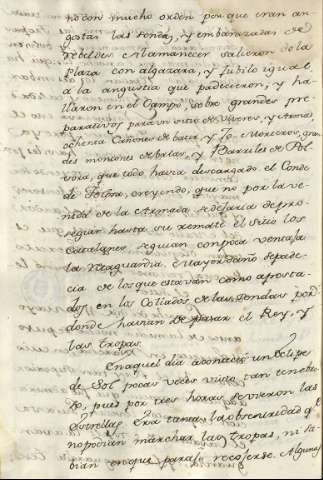 no con mucho orden por que eran an-
gostas las sendas, y embarazadas de
rebeldes. Al amanecer salieron de la
Plaza con algazara, y Jubilo igual
a la angustia que padecieron, y ha-
llaron en el Campo, sobre grandes pre-
parativos para un sitio de Viveres, y Armas,
ochenta Cañones de batir, y Morteros, gran-
des montones de balas, y Barriles de Pol-
vora, que todo havia descargado el Conde
de Tolosa, creyendo, que no por la ve-
nida de la Armada se dejaria de pro-
seguir hasta su remate el Sitio los
Catalanes seguian con poca ventaja
la Retaguardia, cuyo daño depade-
cia de los que estavan como aposta-
dos en los Collados de las Sendas por
donde havian de pasar el Rey, y
las tropas.
En aquel dia acontecio un Eclipse
de Sol pocas veces visto tan tenebro-
so, pues por tres horas se vieron las
estrellas. Era tanta la obscuridad q.
no podian marchar las tropas, ni sa-
bian en que parale recogerse. Algunos